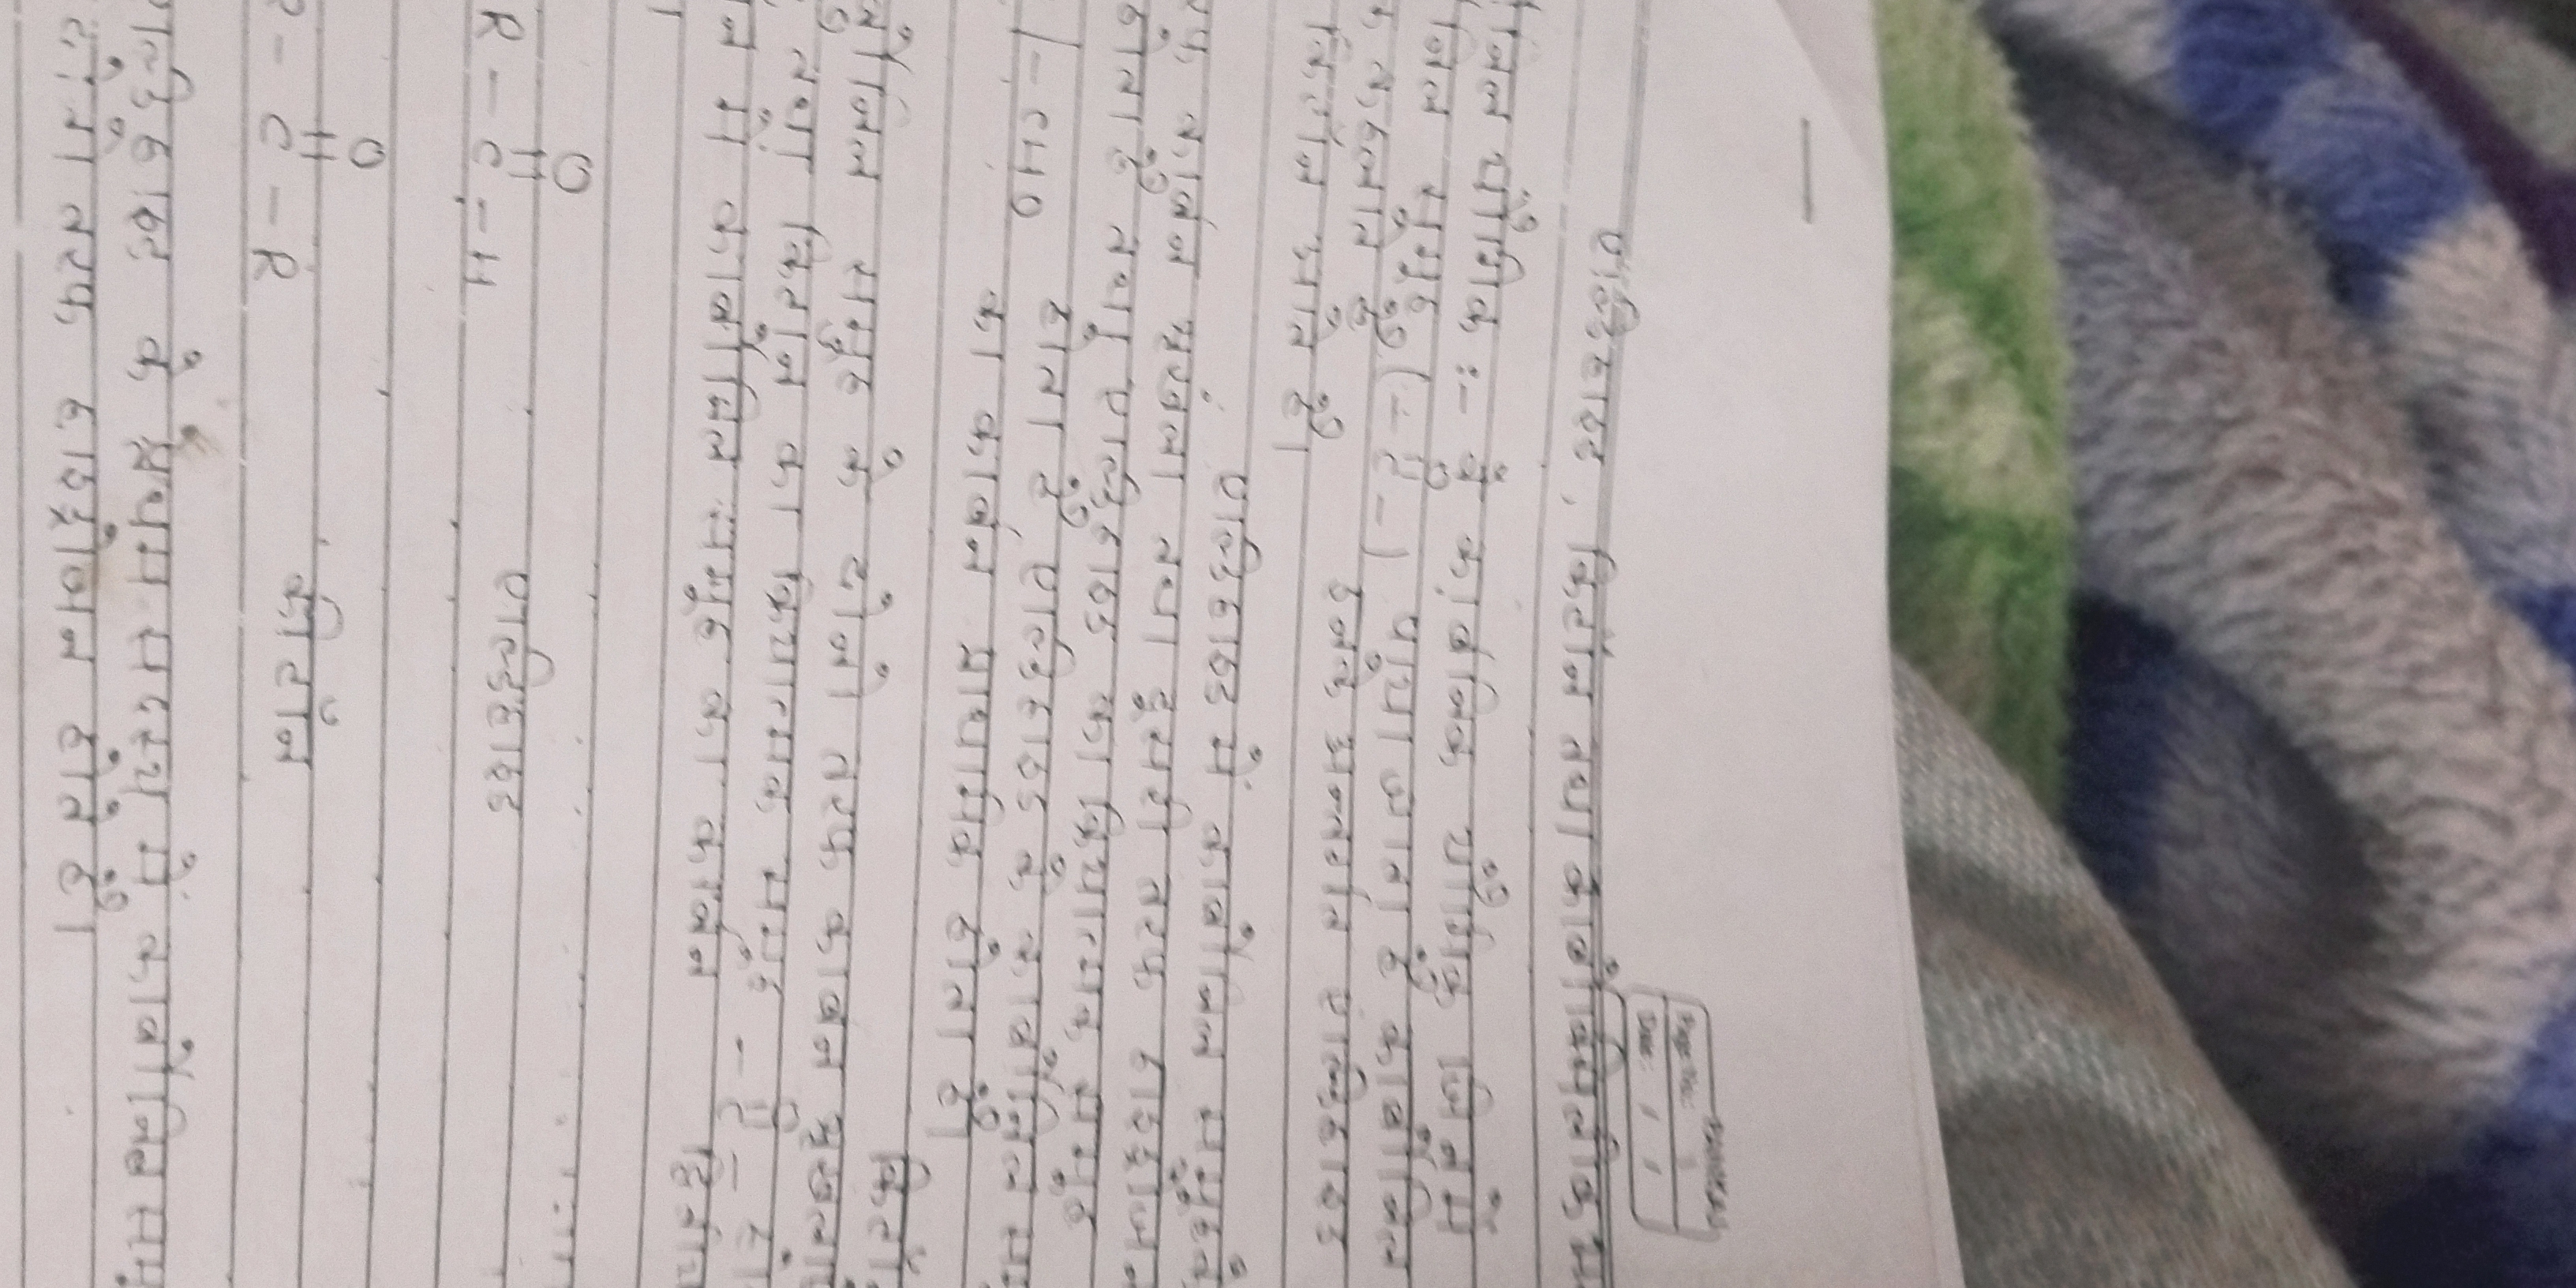 Page No.
Date: / /
एल्डिहाइड, किटोन तथा कार्बोक्सिलिक
योगिक :- वे कार्बनिक योगिक जिनमें
समुह (-C-) पाया जाता है कार्बोनिल
O
कहलाते है। इनके अन्तर्गत एल्डिहाइड
किटोन आते है।
एल्डिहाइड में कार्बोनिल समुह के
एक कार्बन श्रृंखला तथा दुसरी तरफ हाइड्रोजन
होता है तथा एल्डिहाइड का क्रियात्मक समुह
-CHO होता है एल्डिहाइड के कार्बोनिल
का कार्बन प्राथमिक होता है।
समुह के दोनो तरफ कार्बन श्रृंखला
तथा किटोन का क्रियात्मक समुह -C-
O
में कार्बोनिल समुह का कार्बन
O
R-C-H एल्डिहाइड
O
R-C-R कीटोन
के प्रथम सदस्य में कार्बोनिल
दोनो तरफ हाइड्रोजन होते है।